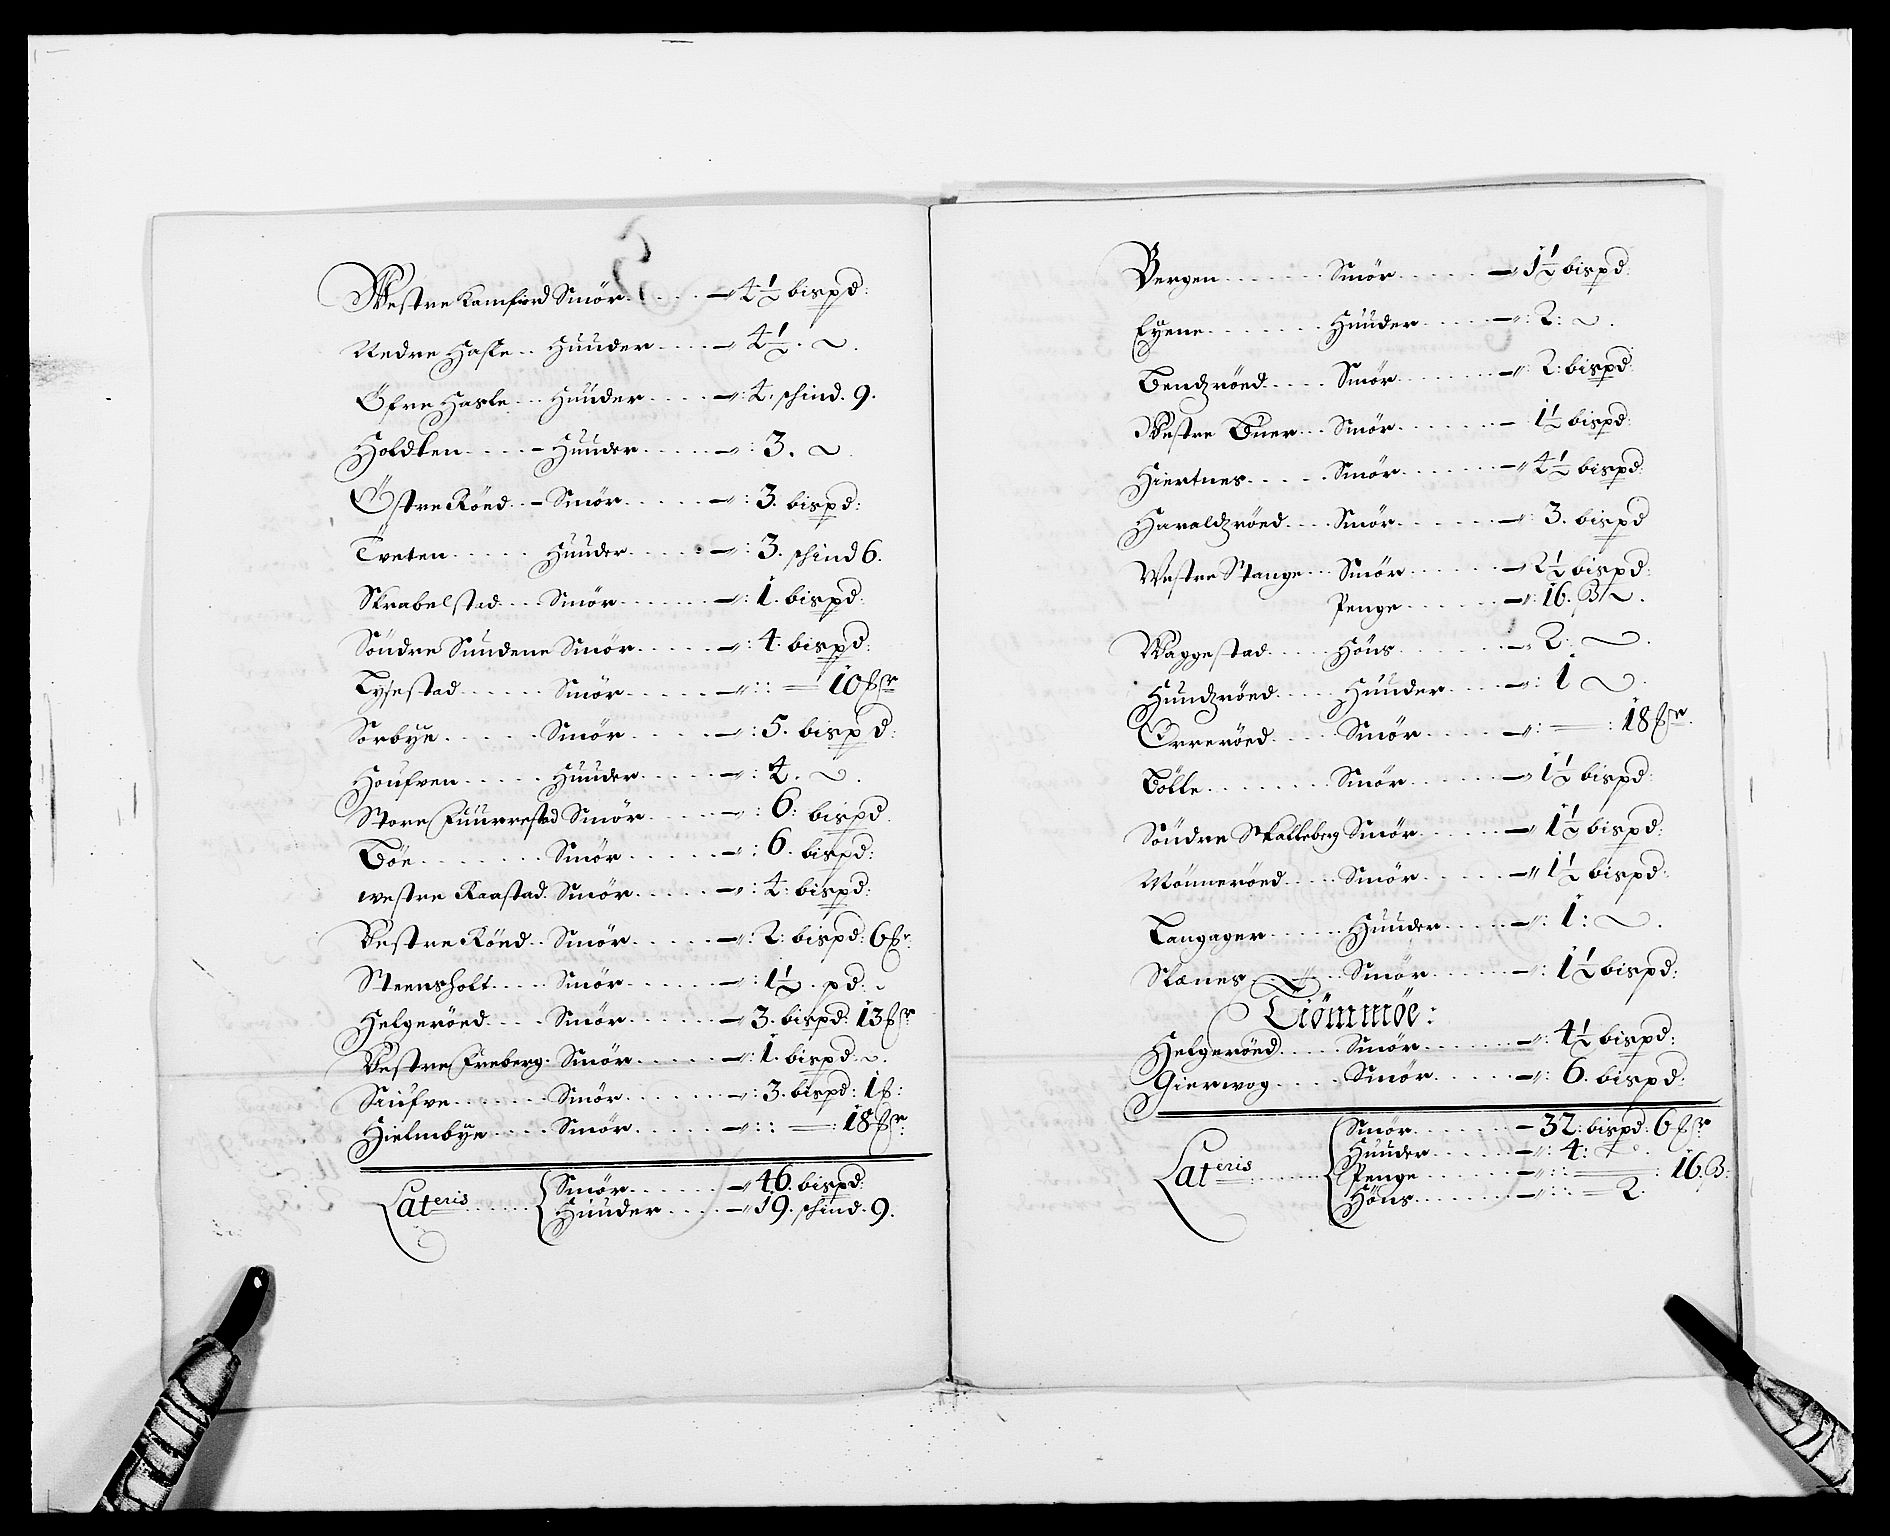 Westre Kamfiord Smör ..... 4½ bispd:
Nedre Hasle .. Huuder .... 4½. ~.
Öfre Hasle ... Huuder .... : 4. schind. 9.
Holdten ..... Huuder ..... : 3. ~.
Östre Röed .. Smör ...... : 3. bispd:
Tveten ..... Huuder ..... : 3. schind 6.
Skrabelstad ... Smör ...... : 1. bispd:
Söndre Sundene Smör ..... : 4. bispd:
Lysestad ...... Smör ..... :: — 10
Sorbye ...... Smör ..... : 5. bispd:
Houfven ..... Huuder ..... : 4. ~.
Store Fuurrestad Smör .... : 6: bispd.
Böe ........ Smör ..... : 6. bispd:
westre Raastad. Smör ..... : 4: bispd:
Vestre Röed .. Smör ..... : 2: bispd: 6
Steensholt .... Smör ...... : 1½. pd: ~
Helgeröed .... Smör ...... 3. bispd: 13
Vestre Freberg. Smör ..... : 1. bispd. ~.
Saufve ...... Smör ...... : 3. bispd: 1
Hielmbye .... Smör ..... :: — : 18
Lateris ...... Smör ...... 46. bispd:
Huuder .... 19. schind: 9.
Bergen ...... Smör ..... 1½ bispd:
Eyene ....... Huuder .... : 2: ~.
Bendzröed .... Smör ...... : 2: bispd:
Westre Buer ... Smör ...... 1½ bispd:
Hiertnes ..... Smör ...... 4½ bispd:
Haraldzröed ... Smör ..... : 3. bispd
Westre Stange .. Smör ..... 2½ bispd:
Penge ...... : 16. ß ~.
Waggestad .... Höns ...... 2: ~.
Hundzröed .... Huuder .... : 1 ~.
Orreröed .... Smör ..... : — : 18
Bölle ........ Smör ...... 1½ bispd:
Söndre Skalleberg Smör ..... 1½ bispd:
Mönneröed .... Smör ..... 1½ bispd:
Langager ..... Huuder .... : 1: ~.
Skænes ... Smör ...... : 1½ bispd:
Tiömmöe:
Helgeröed ..... Smör ...... : 4½ bispd:
Gierwog ..... Smör ..... : 6. bispd:
Lateris ...... Smör ...... 32: bispd: 6
Huuder ..... : 4:
Penge ..... :: — : 16. ß:
Höns ...... :: — 2.